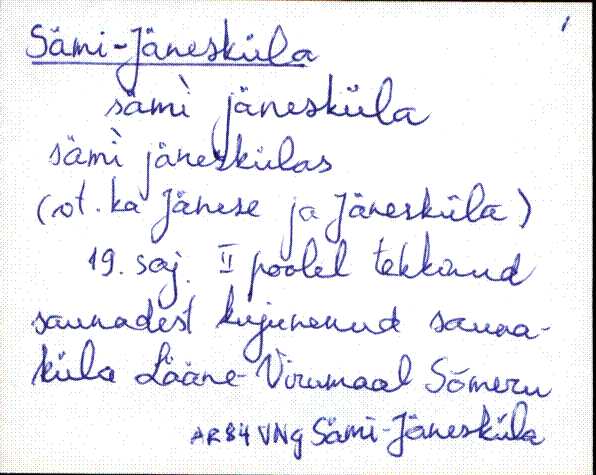 1
Sämi-Jänesküla
sämì jänesküla
sämì jäneskülas
(vt. ka Jänese ja Jänesküla)
19. saj. II poolel tekkinud
saunadest kujunenud sauna-
küla Lääne-Virumaal Sõmeru
AR84 VNg Sämi-Jänesküla